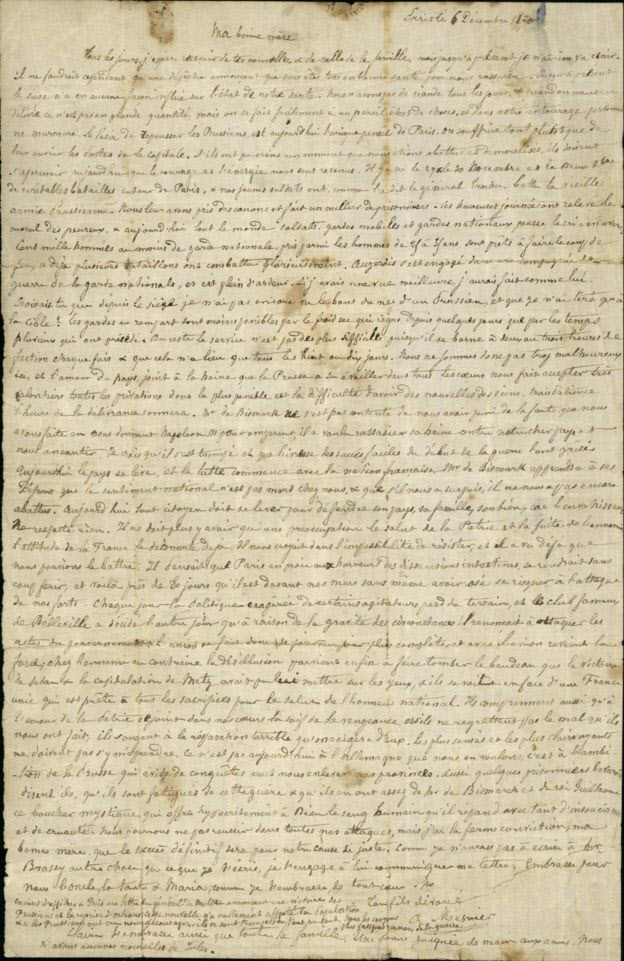 6 Décembre 1870
Ma bonne mère
Tous les jours, j'espère recevoir de tes nouvelles, & de celles de la famille, mais jusqu'à présent je n'ai rien vu venir.
Il ne faudrait cependant qu'une dépêche annonçant que vous êtes tous en bonne santé pour nous rassurer. Jusqu'à présent
le siège n'a en aucune façon influé sur l'état de notre santé. Nous n'avons pas de viande tous les jours, & quand on nous en
délivre ce n'est pas en grande quantité, mais on se fait facilement à un pareil état de choses, et dans notre entourage personne
ne murmure. Le désir de repousser les Prussiens, est aujourd'hui l'unique pensée de Paris. On souffrira tout plutôt que de
leur ouvrir les portes de la capitale. S'ils ont pu croire un moment que nous étions abattus et démoralisés, ils doivent
s'apercevoir aujourd'hui que le courage et l'énergie nous sont revenus. Il y a eu le 29 & le 30 Novembre et le deux Xbre
de véritables batailles autour de Paris, & nos jeunes soldats ont, comme l'a dit le général Trochu, battu la vieille
armée Prussienne. Nous leur avons pris des canons et fait un millier de prisonniers. Ces heureuses journées ont relevé le
moral des peureux, & aujourd'hui tout le monde, soldats, gardes mobiles et gardes nationaux pousse le cri en avant.
Cent mille hommes au moins de garde nationale, pris parmi les hommes de 25 à 35 ans, sont prêts à faire le coup de
feu, & déjà plusieurs bataillons ont combattu glorieusement. s'est engagé dans une compagnie de
guerre de la garde nationale, et est plein d'ardeur. Si j'avais une vue meilleure j'aurais fait comme lui.
Croirais tu que depuis le siège je n'ai pas encore vu le bout du nez d'un Prussien, et que je n'ai tiré qu'à
la cible? Les gardes au rempart sont moins pénibles par le froid sec qui règne depuis quelques jours que par les temps
pluvieux qui ont précédé. Du reste le service n'est pas des plus difficile puisqu'il se borne à deux ou trois heures de
faction chaque fois & que cela n'a lieu que tous les huit ou dix jours. Nous ne sommes donc pas trop malheureux
ici, et l'amour du pays, joint à la haine que la Prusse a su éveiller dans tous les cœurs nous fait accepter très
volontiers toutes les privations dont la plus pénible est la difficulté d'avoir des nouvelles des siens. Mais patience
l'heure de la délivrance sonnera. Mr de Bismark ne s'est pas contenté de nous avoir puni de la faute que nous
avons faite en nous donnant Napoléon III pour empereur, il a voulu rassasier sa haine contre notre cher pays &
nous anéantir. Je crois qu'il s'est trompé et que les succès faciles du début de la guerre l'ont grisé.
Aujourd'hui le pays se lève, et la lutte commence avec la nation française. Mr de Bismark apprendra à ses
dépens que le sentiment national n'est pas mort chez nous, & que s'il nous a surpris, il ne nous a pas encore
abattus. Aujourd'hui tout citoyen doit se lever pour défendre son pays, sa famille, son bien, car l'envahisseur
ne respecte rien. Il ne doit plus y avoir qu'une préoccupation le salut de la Patrie et la fuite de l'ennemi.
L'attitude de la France le déconcerte déjà. Il nous croyait dans l'impossibilité de résister, et il a vu déjà que
nous pouvions le battre. Il pensait que Paris en proie aux horreurs des dissensions intestines, se rendrait sans
coup férir, et voilà près de jours qu'il est devant nos murs sans même avoir osé se risquer à l'attaque
de nos forts. Chaque jour la politique exagérée de certains agitateurs perd du terrain, et le club fameux
de Belleville a décidé l'autre jour qu'à raison de la gravité des circonstances il renonçait à attaquer les
actes du gouvernement. L'union se fait donc de jour en jour plus complète, et avec l'union revient la
force. Chez l'ennemi au contraire la désillusion parvient enfin à faire tomber le bandeau que la victoire
de Sedan & la capitulation de Metz avait pu lui mettre sur les yeux, & il se voit en face d'une France
unie qui est prête à tous les sacrifices pour le salut de l'honneur national. Ils comprennent aussi qu'à
l'amour de la patrie se joint dans nos cœurs la soif de la vengeance, et s'ils ne regrettent pas le mal qu'ils
nous ont fait, ils songent à la réparation terrible qu'on exigera d'eux. Les plus sensés et les plus clairvoyants
ne doivent pas s'y méprendre, ce n'est pas aujourd'hui à l'Allemagne que nous en voulons, c'est à l'ambi-
-tion de la Prusse qui avide de conquêtes veut nous enlever nos provinces. Aussi quelques prisonniers bavarois
disent ils, qu'ils sont fatigués de cette guerre & qu'ils en ont assez de Mr de Bismark et du roi Guillaume
ce boucher mystique, qui offre hypocritement à Dieu le sang humain qu'il répand avec tant d'insouciance
et de cruauté. Nous pouvons ne pas réussir dans toutes nos attaques, mais j'ai la ferme conviction, ma
bonne mère, que le succès définitif sera pour notre cause si juste. Comme je n'aurais pas à écrire à Mr
Brassy autre chose que ce que je t'écris, je t'engage à lui communiquer ma lettre. Embrasse pour
nous la tante & Maria, comme je t'embrasse de tout cœur.
Ton fils dévoué
Mesnier
On vient d'afficher à Paris une lettre du général de Moltke annonçant une victoire des
Prussiens et la reprise d'Orléans. Cette nouvelle n'a nullement affecté la population
plus fatigués que nous de la guerre.
t'embrasse ainsi que toute la famille. Une bonne poignée de main aux amis. Nous
n'avons aucunes nouvelles de Jules.